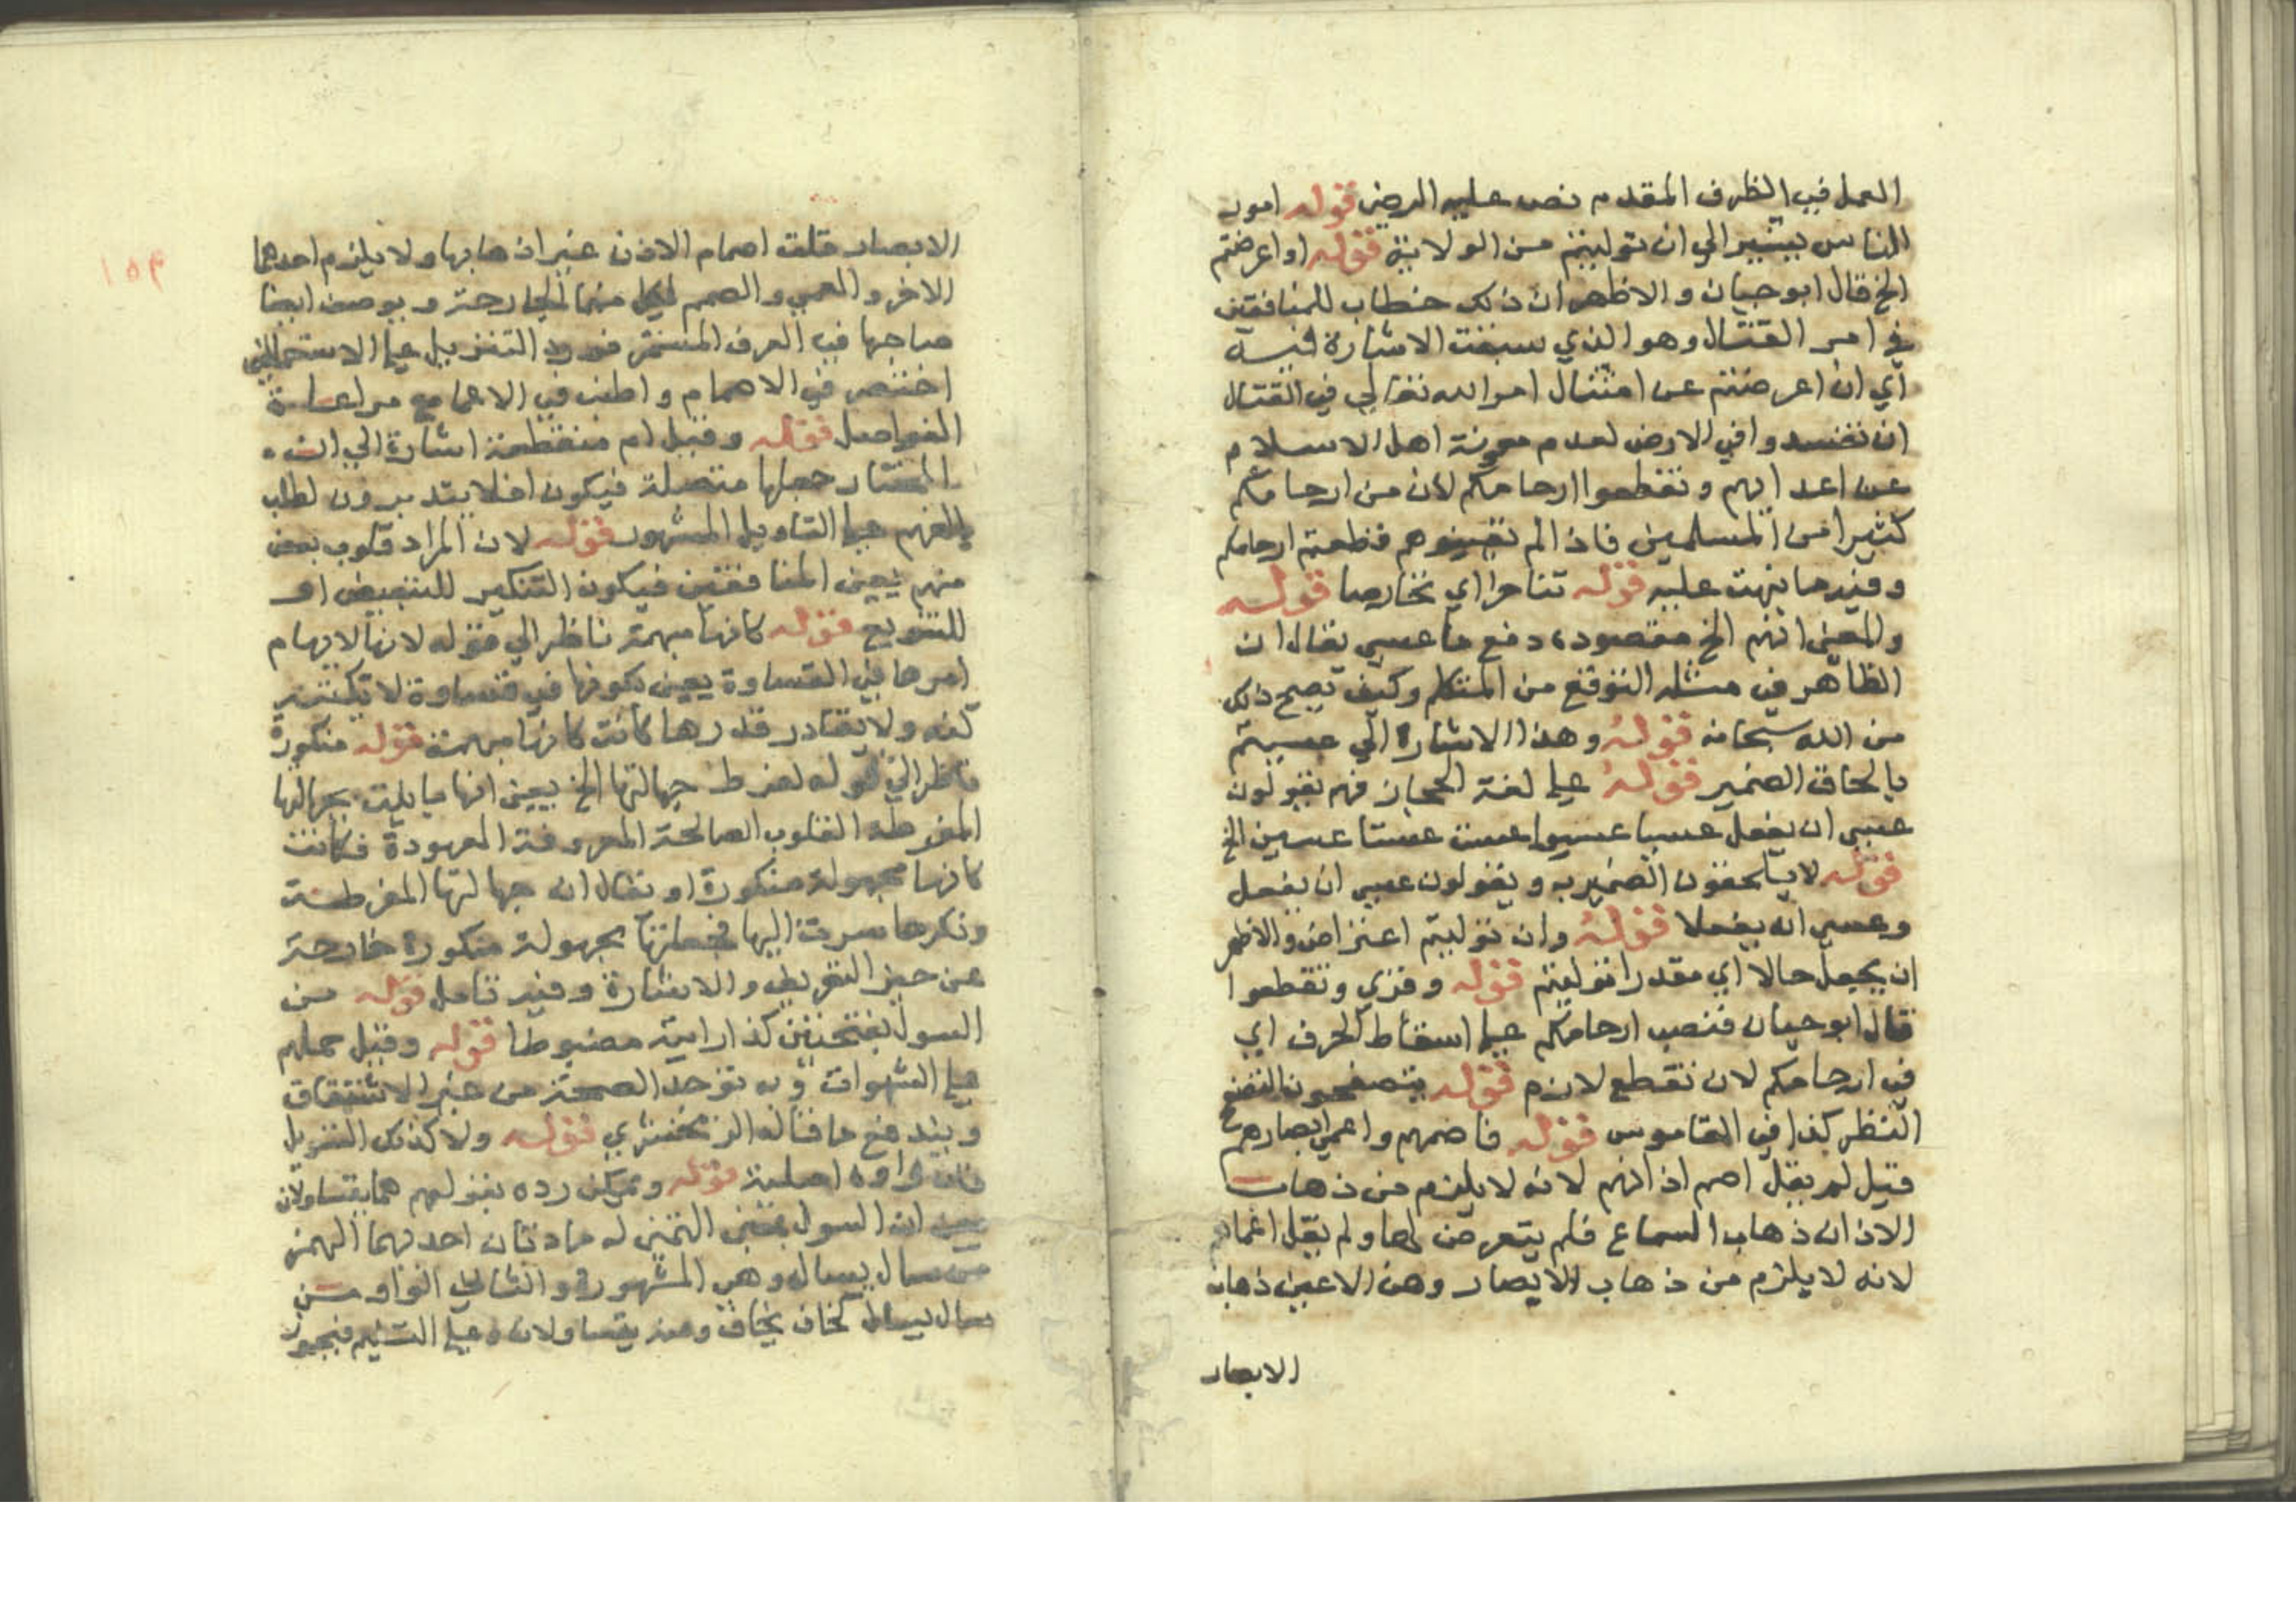 العمل في الظرف المقدم نص عليه الرضى قوله امور
الناس يشير الي ان توليتم من الولاية قوله او اعرضتم
الخ قال ابو حيان والاظهر ان ذلك خطاب للمنافقين
في امر القتال وهو الذي سبقت الاشارة فيه
اي ان اعرضتم عن امتثال امر الله تعالي في القتال
ان تفسدوا في الارض لعدم معونة اهل الاسلام
عن اعدايهم وتقطعوا ارحامكم لان من ارحامكم
كثيرا من المسلمين فاذا لم تعينوهم قطعتم ارحامكم
وفيه ما نبهت عليه قوله تناحرا اي تخاصما قوله
والمعني انهم الخ مقصوده دفع ما عسي يقال ان
الظاهر في مثله التوقع من المتكلم وكيف يصح ذلك
من الله سبحانه قوله وهذا الاشارة الي عسيتم
بالحاق الضمير قوله علي لغة الحجاز فهم يقولون
عسي ان يفعل عسيا عسيوا عست عستا عسين الخ
قوله لا يلحقون الضمير به ويقولون عسي ان يفعل
وعسي ان يفعلا قوله وان توليتم اعتراض والاظهر
ان يجعل حالا اي مقدرا توليتم قوله وقري وتقطعوا
قال ابو حيان فنصب ارحامكم علي اسقاط الحرف اي
في ارحامكم لان تقطع لازم قوله يتصفحون التصفح
النظر كذا في القاموس قوله فاصمهم واعمي ابصارهم
قيل لم يقل اصم اذانهم لانه لا يلزم من ذهاب
الاذان ذهاب السماع فلم يتعرض لها ولم يقل اعماهم
لانه لا يلزم من ذهاب الابصار وهن الاعين ذهاب
الابصار
١٥٣
الابصار قلت اصمام الاذن غير اذهابها ولا يلزم احدهما
الاخر والعمي والصمم لكل منهما الجارحة ويوصف ايضا
صاحبها في العرف المستمر فورد التنزيل علي الاستعمالين
اختصر في الاصمام واطنب في الاعما مع مراعاة
الفواصل قوله وقيل ام منقطعة اشارة الي ان
المختار جعلها متصلة فيكون افلا يتدبرون لطلب
الفهم علي التاويل المشهور قوله لان المراد قلوب بعض
منهم يعين المنافقين فيكون التنكير للتبعيض او
للتنويع قوله كانها مبهمة ناظر الي قوله لانها لابهام
امرها في القساوة يعين بكونها في قساوة لا يكتنه
كنه ولا يقادر قدرها كانت كانها مبهمة قوله منكورة
ناظر الي قوله لفرط جهالتها الخ يعين انها مباينة بجهالتها
المفرطة القلوب الصالحة المعروفة المعهودة فكانت
كانها مجهولة منكورة او يقال ان جهالتها المفرطة
ونكرها سرت اليها فجعلتها مجهولة منكورة خارجة
عن حيز التعريف والاشارة وفيه تامل قوله من
السول بفتحتين كذا رايته مضبوطا قوله وقيل حملهم
علي الشهوات وبه توخذ الصحة من غير الاشتقاق
ويندفع ما قاله الزمخشري قوله ولا كذلك التسويل
فان واوه اصلية قوله ويمكن رده بقولهم هما يتساولان
يعين ان السول بمعني التمني له مادتان احديهما الهمز
من سال يسال وهي المشهورة والثاني الواو من
سال يسال كخاف يخاف ومنه يتساولان وعلي التسهيم فيجوز